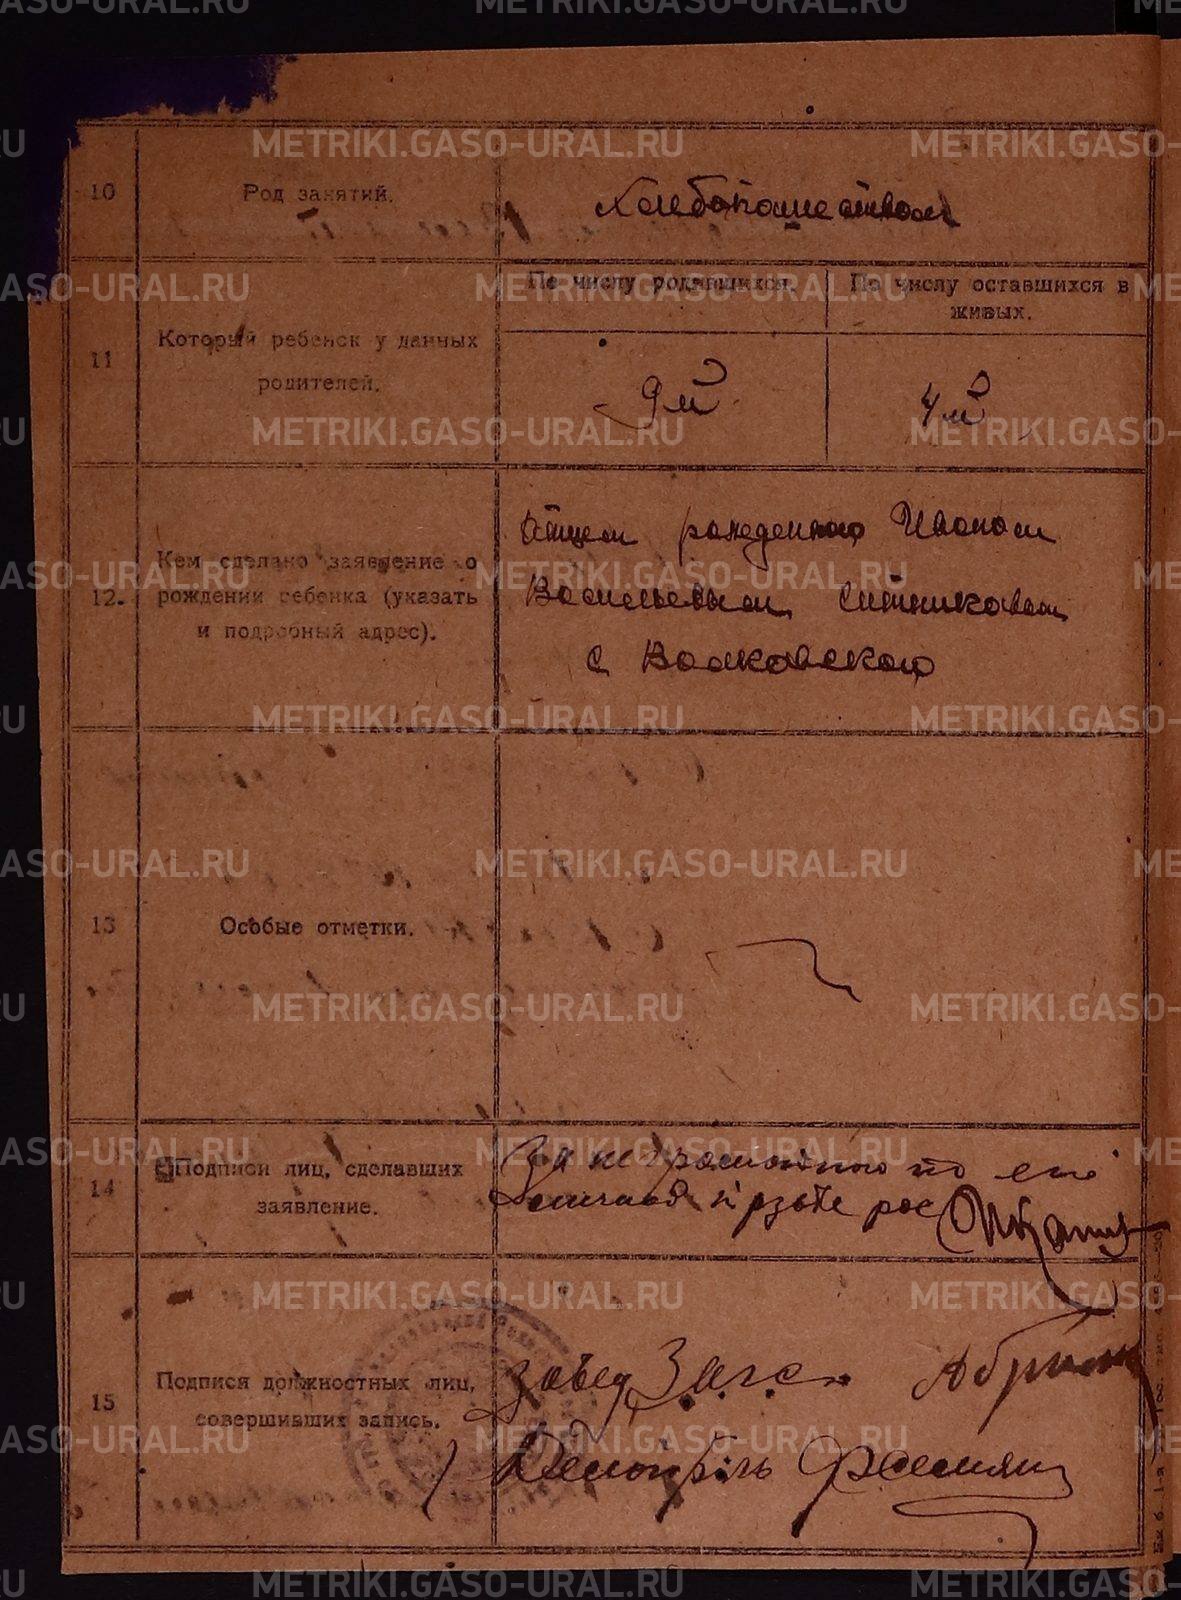 METRIKI.GASO-URAL.RU
10
Род занятий.
Хлебопашеством
11
Который ребенок у данных
родителей.
По числу родившихся.
По числу оставшихся в
живых.
9й
4й
12.
Кем сделано заявление о
рождении ребенка (указать
и подробный адрес).
Отцем рожденного Иваном
Васильевым Ситниковым
с Волковского
13
Особые отметки.
14
Подписи лиц, сделавших
заявление.
За неграмотного по его
личной прозбе рос
15
Подписи должностных лиц,
совершивших запись.
Завед Загс